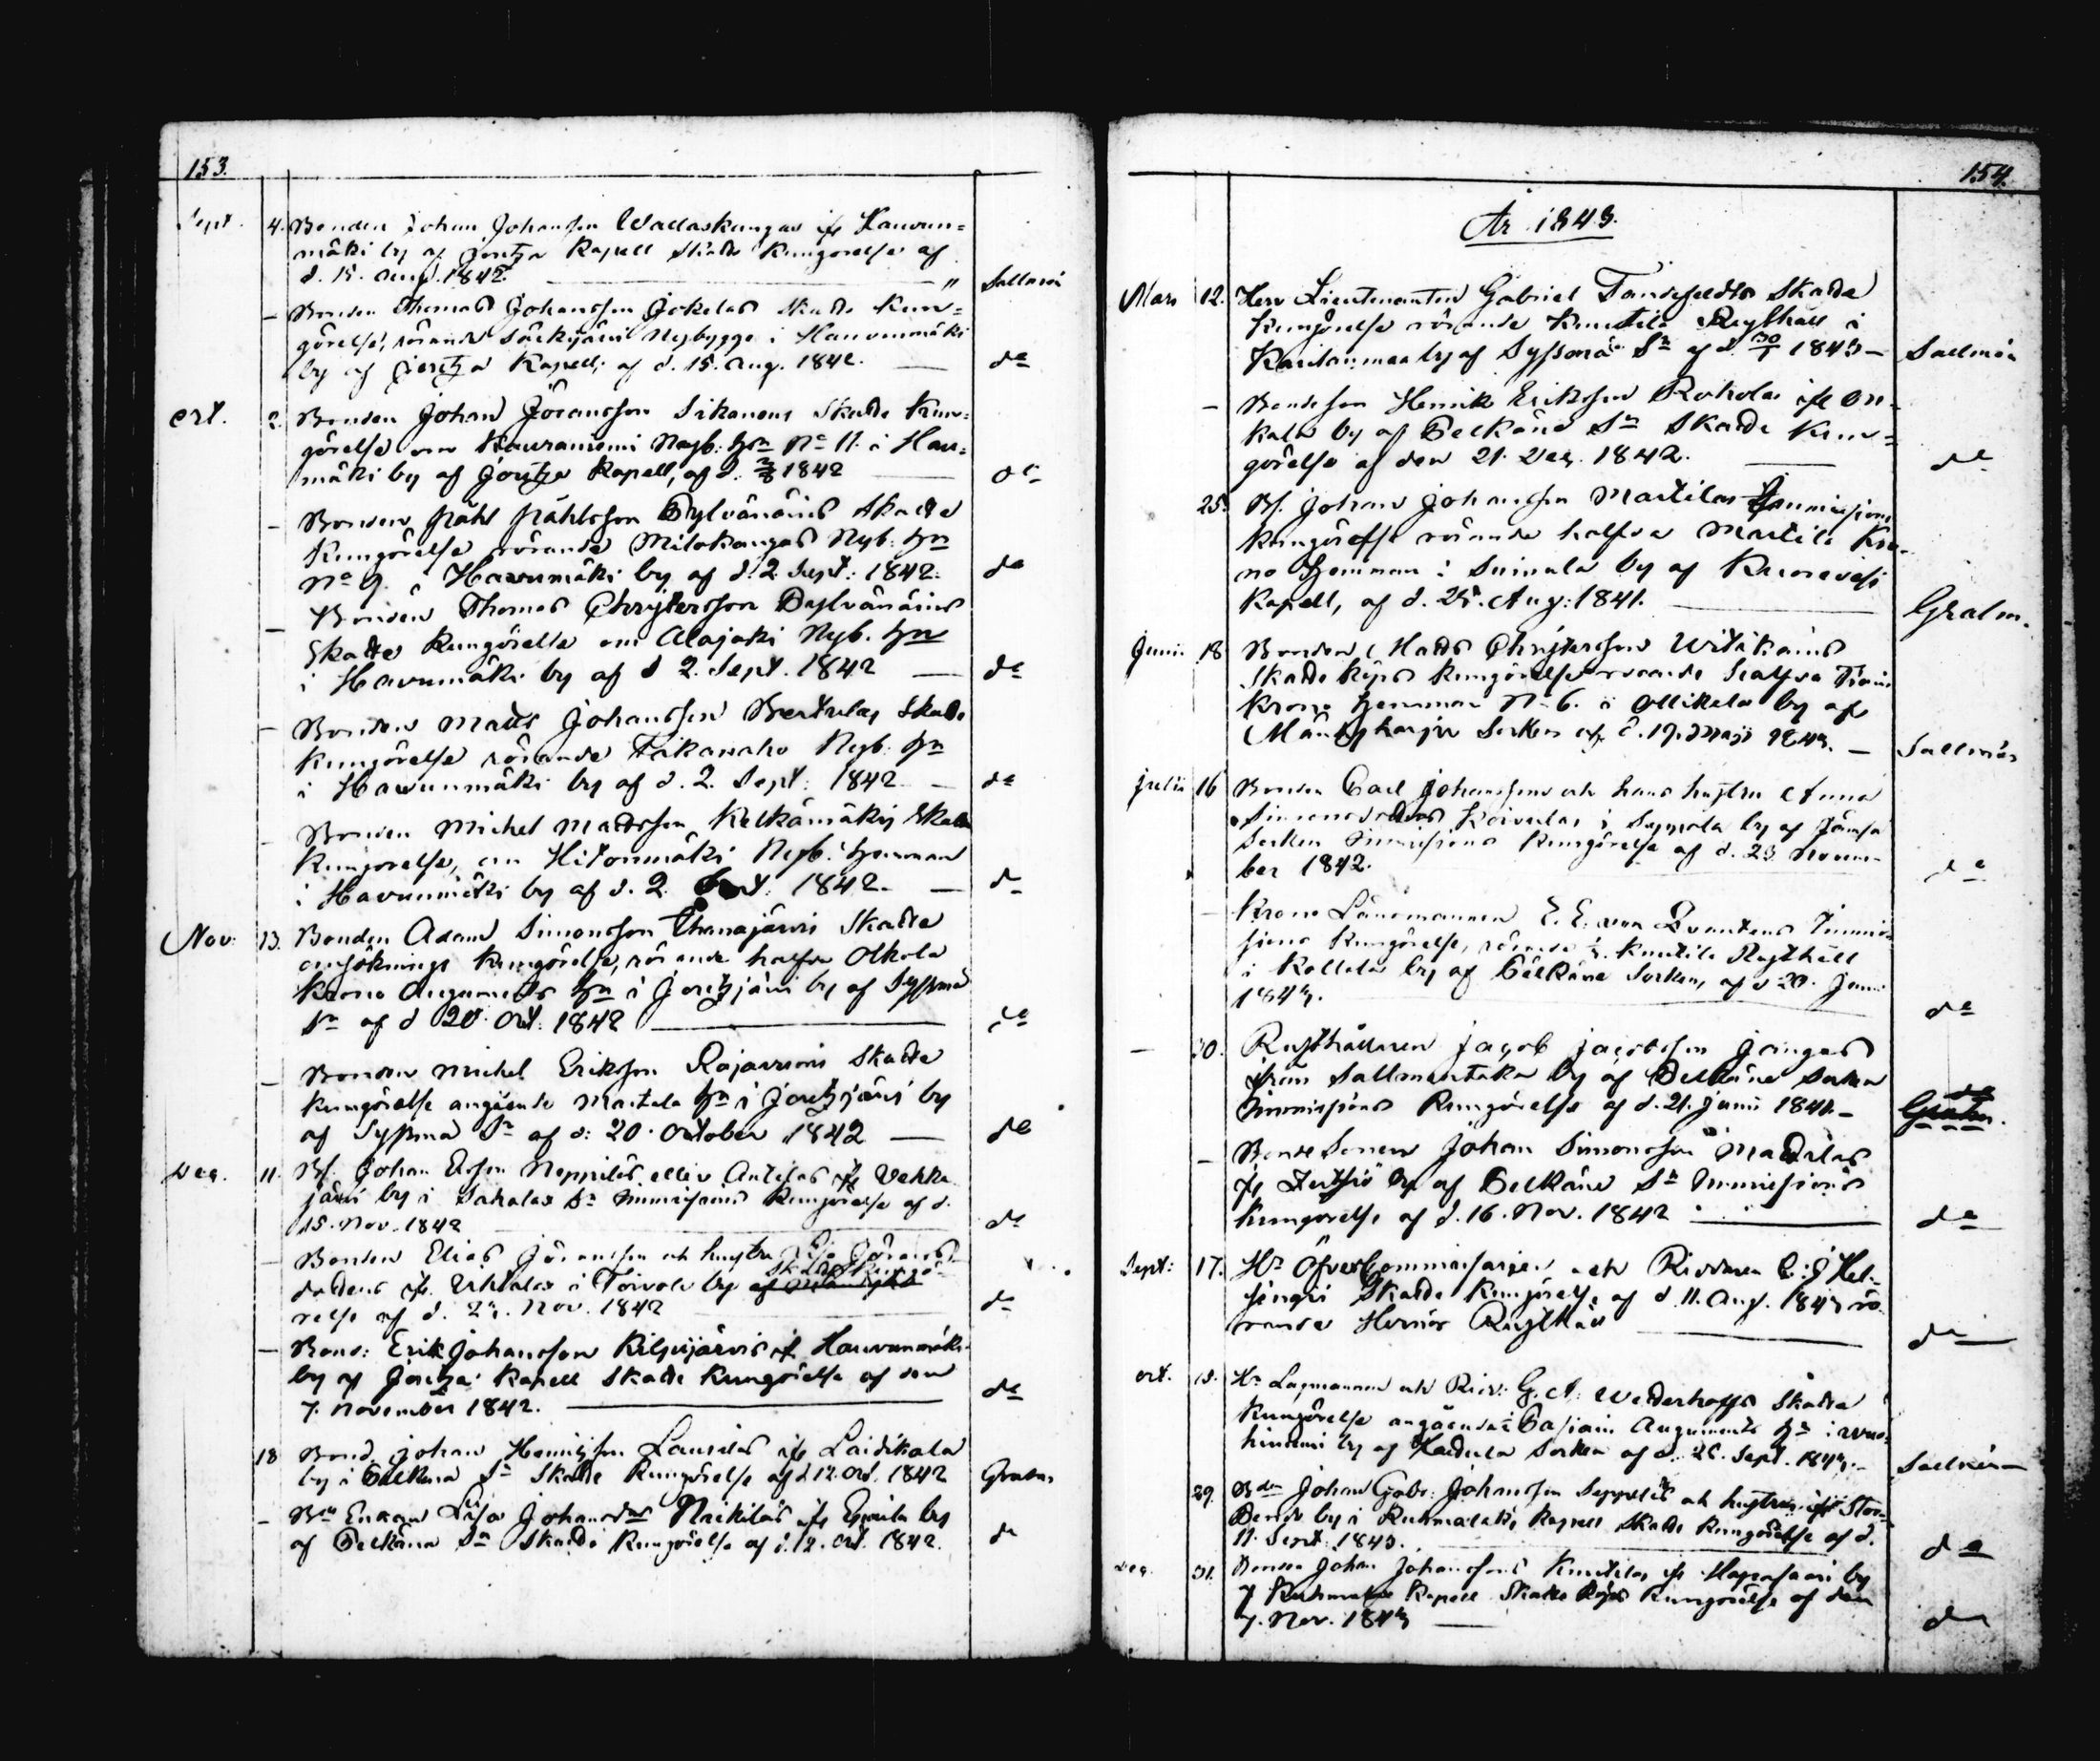 153.
Sept. 4. Bonden Johan Johansson Wallaskangas ifr Hauvun=
mäki by af Joutza Kapell Skatte Kungörelse af
d. 15. Aug. 1842. " Sallmén
— Bonden Thomas Johansson Jokelas Skatte Kun=
görelse, rörande Särkijärvi Nybygge i Hauvunmäki
by af Joutza Kapell; af d. 15. Aug. 1842. — do
Oct. 2. Bonden Johan Göransson Sikanens Skatte Kun=
görelse om Hauvaniemi Nyb. hn No 11. i Hau=
mäki by af Joutza Kapell, af d. 1842 — do
— Bonden Påhl Påhlsson Pylvänäins Skatte
Kungörelse rörande Milokangas Nyb. hn
No 9. i Havumäki by af d. 2. Sept: 1842. do
— Bonden Thomas Christersson Pylvänäins
Skatte Kungörelse om Alajoki Nyb. hn
i Havumäki by af d 2. Sept. 1842 — do
— Bonden Matts Johansson Perttulas Skatte
Kungörelse rörande Takanaho Nyb. hn
i Hawunmäki by af d. 2. Sept. 1842 — do
— Bonden Michel Mattsson Kelkämäkis Skatte
Kungörelse, om Hitonmäki Nyb. hemman
i Havunmäki by af d. 2. 1842. — do
Nov. 13. Bonden Adam Simonsson Skatte
ansöknings Kungörelse, rörande halfva Olkola
Krono Augments hn i Joutzjärvi by af Syssmä
Sn af d 20. Oct. 1842 — do
— Bonden Michel Eriksson Rajavuoris Skatte
Kungörelse angående Martela hn i Joutzjärvi by
af Syssmä Sn af d: 20. October 1842 — do
Dec. 11. Bf. Johan Ersson Neppilés eller Antilas ifr Vehka
järvi by i Sahalax Sn Immissions Kungörelse af d.
15. Nov. 1842 do
— Bonden Elias Göransson och hustru Lisa Görans
Skatte Kungö-
dotters ifr. Uhtalas i Toivola by
relse af d. Nov. 1842 do
— Bond: Erik Johansson Kilpijärvis ifr Hauvunmäki
by af Joutza Kapell Skatte Kungörelse af den
7. November 1842. — do
18 Bond. Johan Henricsson Laurilas ifr Laidikala
by i Pelkäna Sn Skatte Kungörelse af d 12. Oct. 1842 Grahn
— Bde Enkan Lisa Johansdr Naikilas ifr by
af Pelkäna Sn Skatte Kungörelse af d. 12. Oct. 1842. do
154.
År 1843.
Mars 12. Herr Lieutenanten Gabriel Tandefeldts Skatte
Kungörelse rörande Knuutila Rusthåll i
Karilanmaa by af Syssmä Sn af d. 30/1 1843 — Sallmén
— Bondeson Henrik Eriksson Roholas ifr On-
kala by af Pelkäne Sn Skatte Kun=
görelse af den 21. Dec. 1842. — do
25. Bf. Johan Johansson Martilas Immissions
Kungörelse rörande halfva Martila Kro-
no Hemman i Suinula by af Kuorevesi
Kapell, af d. 25. Aug: 1841. — Grahn.
Junii 18 Bonden Matts Christersson Witikains
Skatte Köps Kungörelse rörande halfva
Krono hemman No 6. i Ollikala by af
Mändyharju Socken af. d. 19. Maji 1843. — Sallmén
Julii 16 Bonden Carl Johansson och hans hustru Anna
Simonsdotters Koivulas i Seppola by af Jämsä
Socken Immissions Kungörelse af d. 23. Novem-
ber 1842. do
— Krono Länsmannen E. E. von Qvantens Immis
sions Kungörelse, rörande ½. Knutila Rusthåll
i Kollola by af Pelkäne Socken, af d 20. Junii
1843. do
— 30. Rusthållaren Jacob Jacobsson
från Sallmentaka by af Pelkäne Socken do
Immissions Kungörelse af d. 21. Junii 184 — Grahn.
— Bonde Sonen Johan Simonsson Mattilas
ifr by af Pelkäne Sn Immissions
Kungörelse af d. 16. Nov. 1842 — do
Sept: 17. Hr Öfverkommissarien och Riddaren C: J Hel-
singii Skatte Kungörelse af d. 11. Aug. 1843 rö-
rande Rusthåll do
Oct. Hr Lagmannen och Ridd: G. A: Wetterhoffs Skatte
Kungörelse angående Augments hn i Wuo-
hiniemi by af Hattula Socken af d. 25. Sept. 1843. — Sallmén
29. Bden Johan Gabr: Johansson Seppäläs och hustrus ifr Stor-
by i Kuhmalaks Kapell Skatte Kungörelse af d.
11. Sept. 1843. do
Dec. 31. Bonden Johan Johansson Knutilas ifr Haposaari by
af Kuhmalax Kapell Skatte Köps Kungörelse af den
7. Nov. 1843 — do